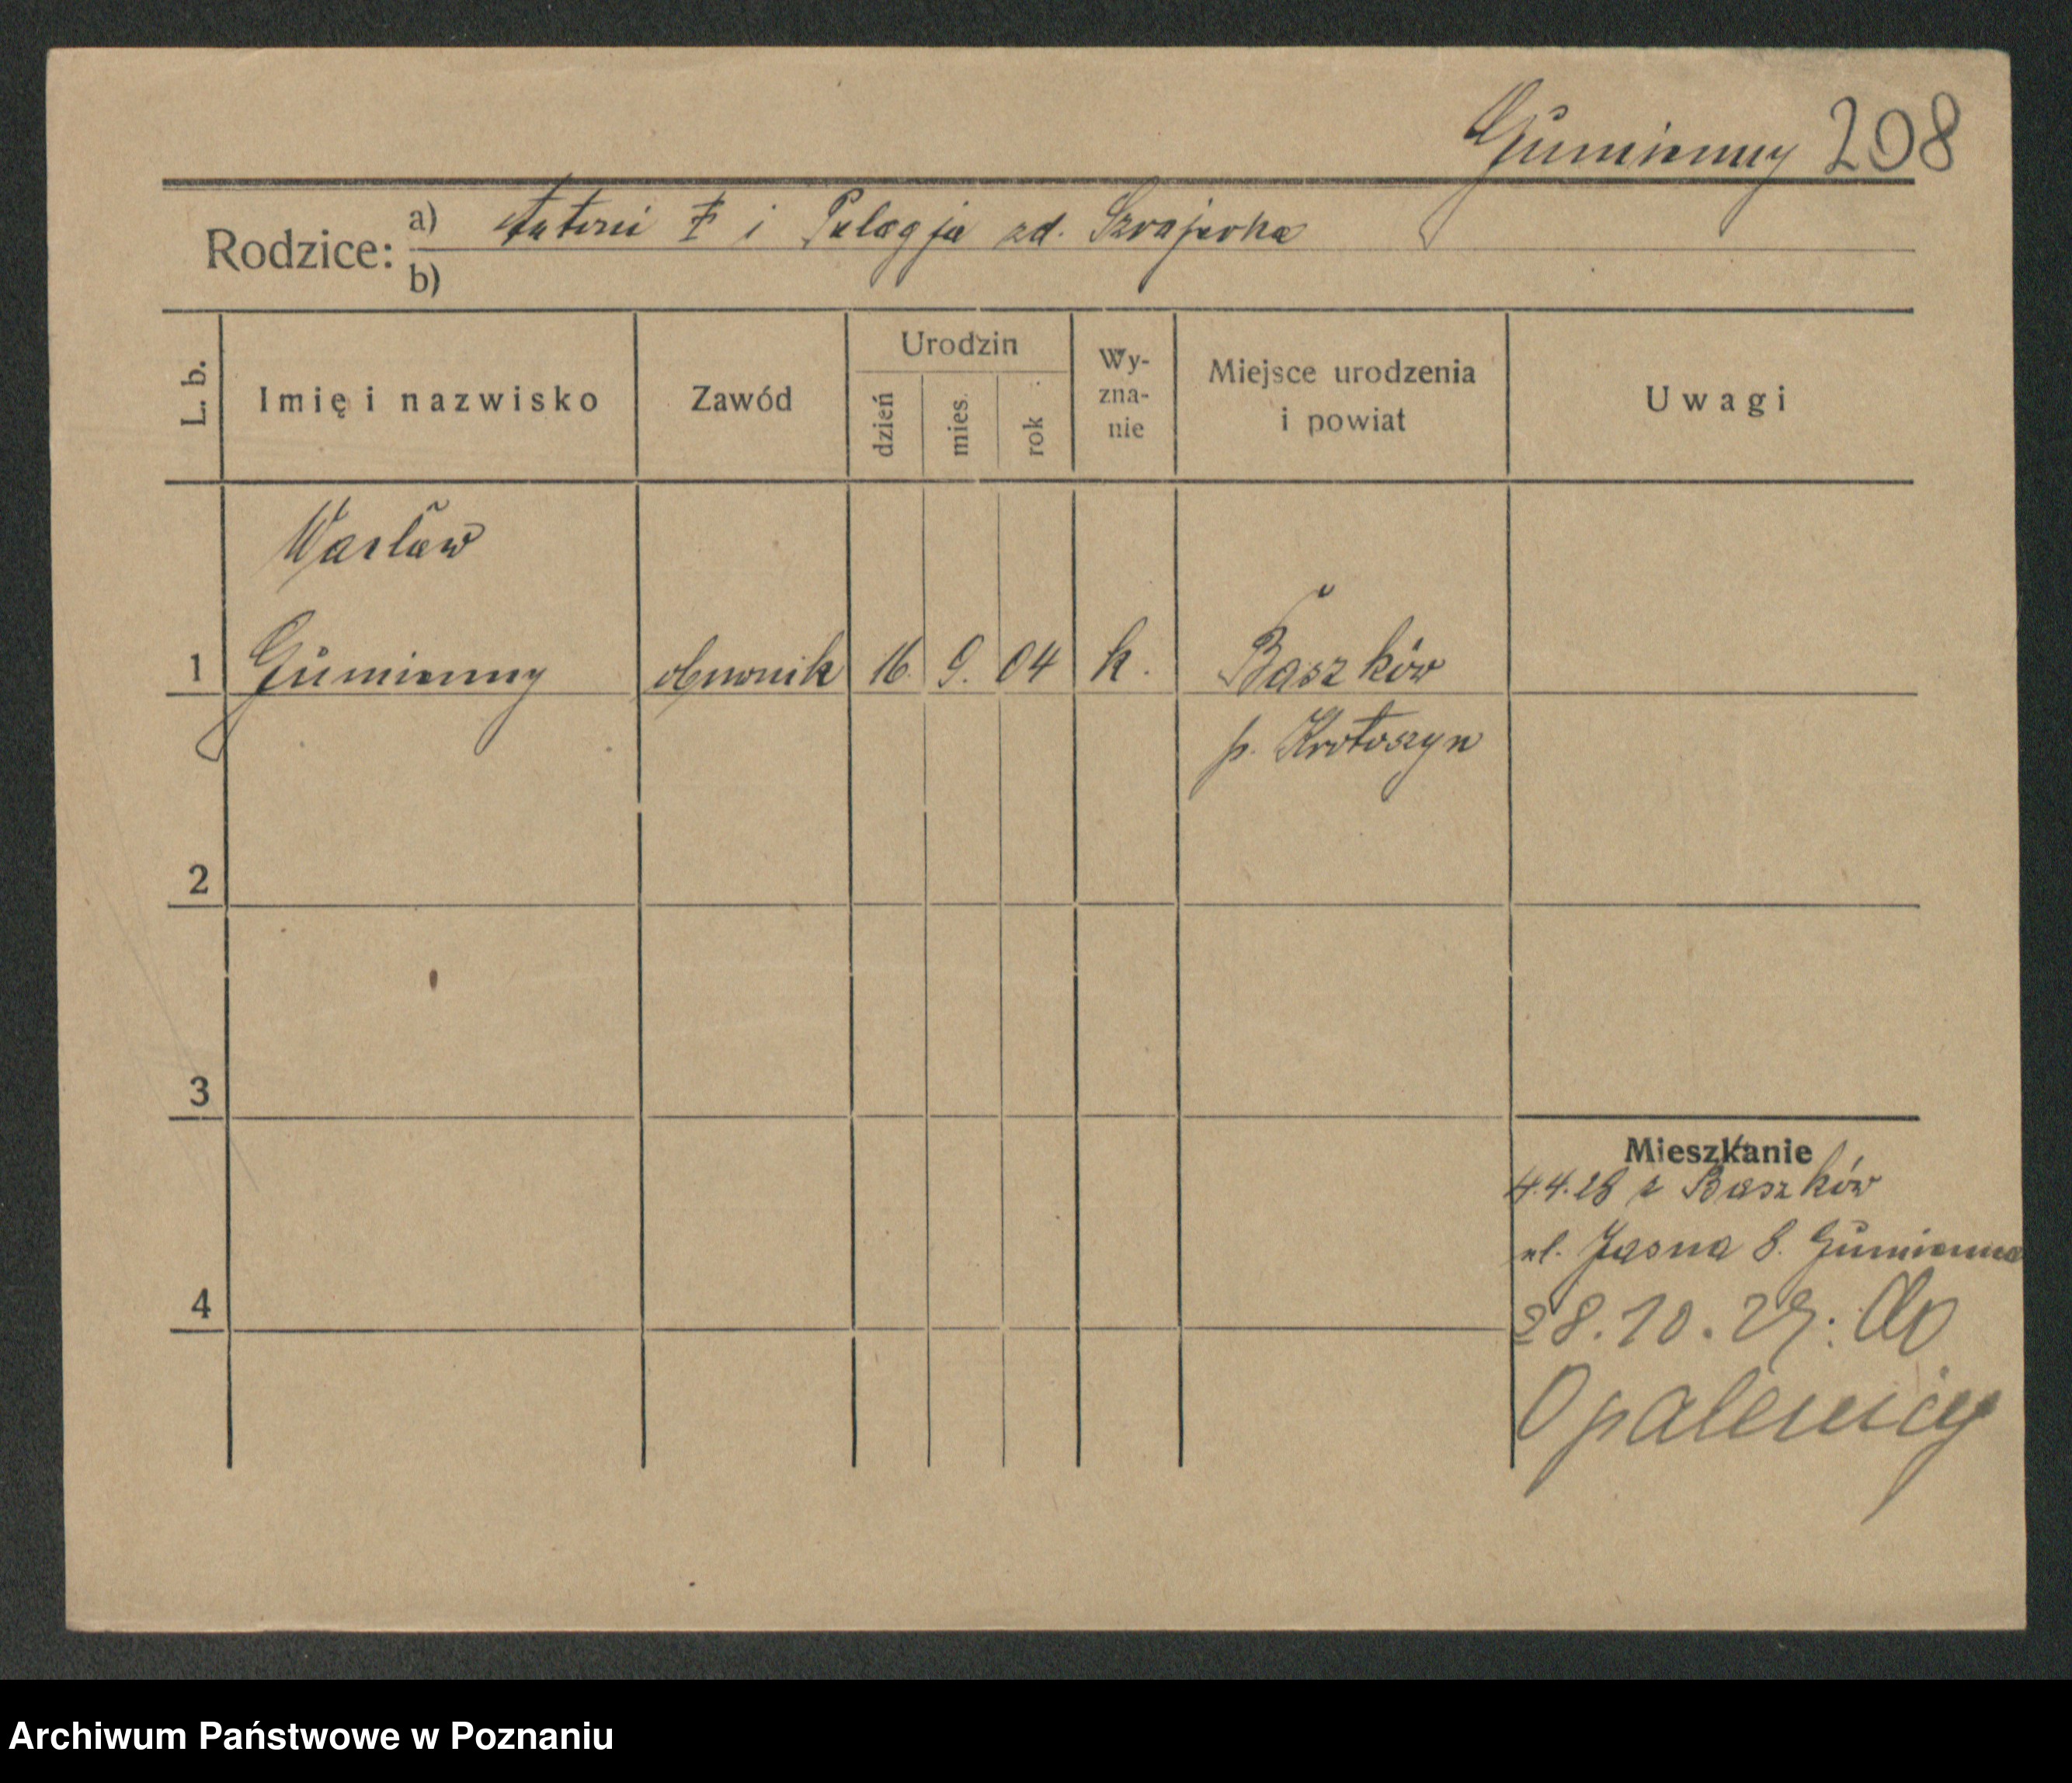 Gumienny 208
Rodzice: a) Antoni † i Pelagja zd. Szrajerka
b)
L. b. Imię i nazwisko Zawód Urodzin dzień mies. rok Wy-zna-nie Miejsce urodzenia i powiat Uwagi
Wacław
1 Gumienny 16. 9. 04 k. Baszków
p. Krotoszyn
2
3
Mieszkanie
4.4.28 z Baszków
ul. Jasna 8. Gumienna
4
28.10.29. do
Opalenicy
Archiwum Państwowe w Poznaniu